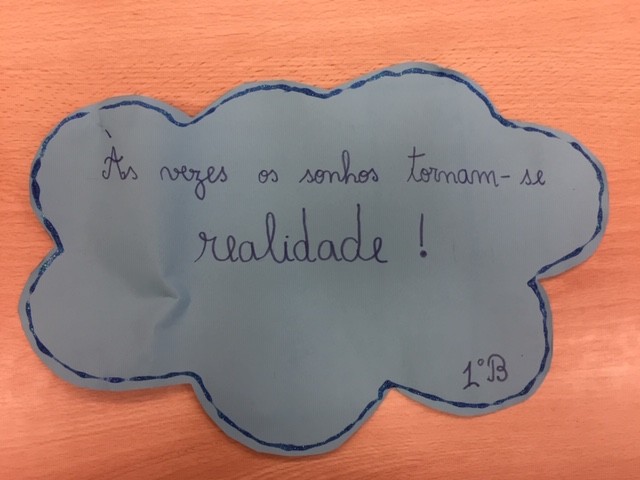 Às vezes os sonhos tornam-se
realidade !
1ºB